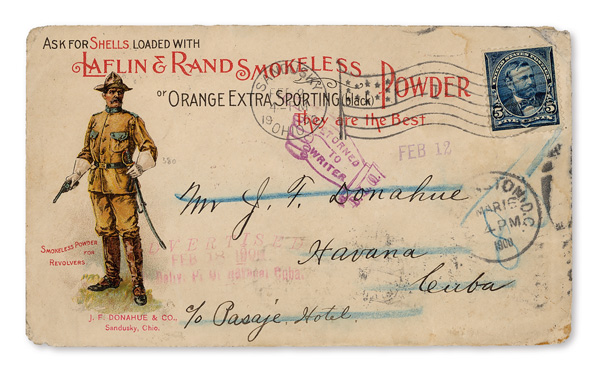 ASK FOR SHELLS LOADED WITH
LAFLIN & RAND SMOKELESS POWDER
or ORANGE EXTRA SPORTING (black)
They are the Best
SANDUSKY
OHIO
RETURNED
TO
WRITER
FEB 12
UNITED STATES POSTAGE
5 FIVE CENTS 5
Mr J. F. Donahue
Havana
Cuba
c/o Pasaje Hotel.
ADVERTISED
FEB
Cuba.
TON, D.C.
MAR
4-PM
1900
SMOKELESS POWDER
FOR
REVOLVERS.
J. F. DONAHUE & CO.,
Sandusky, Ohio.